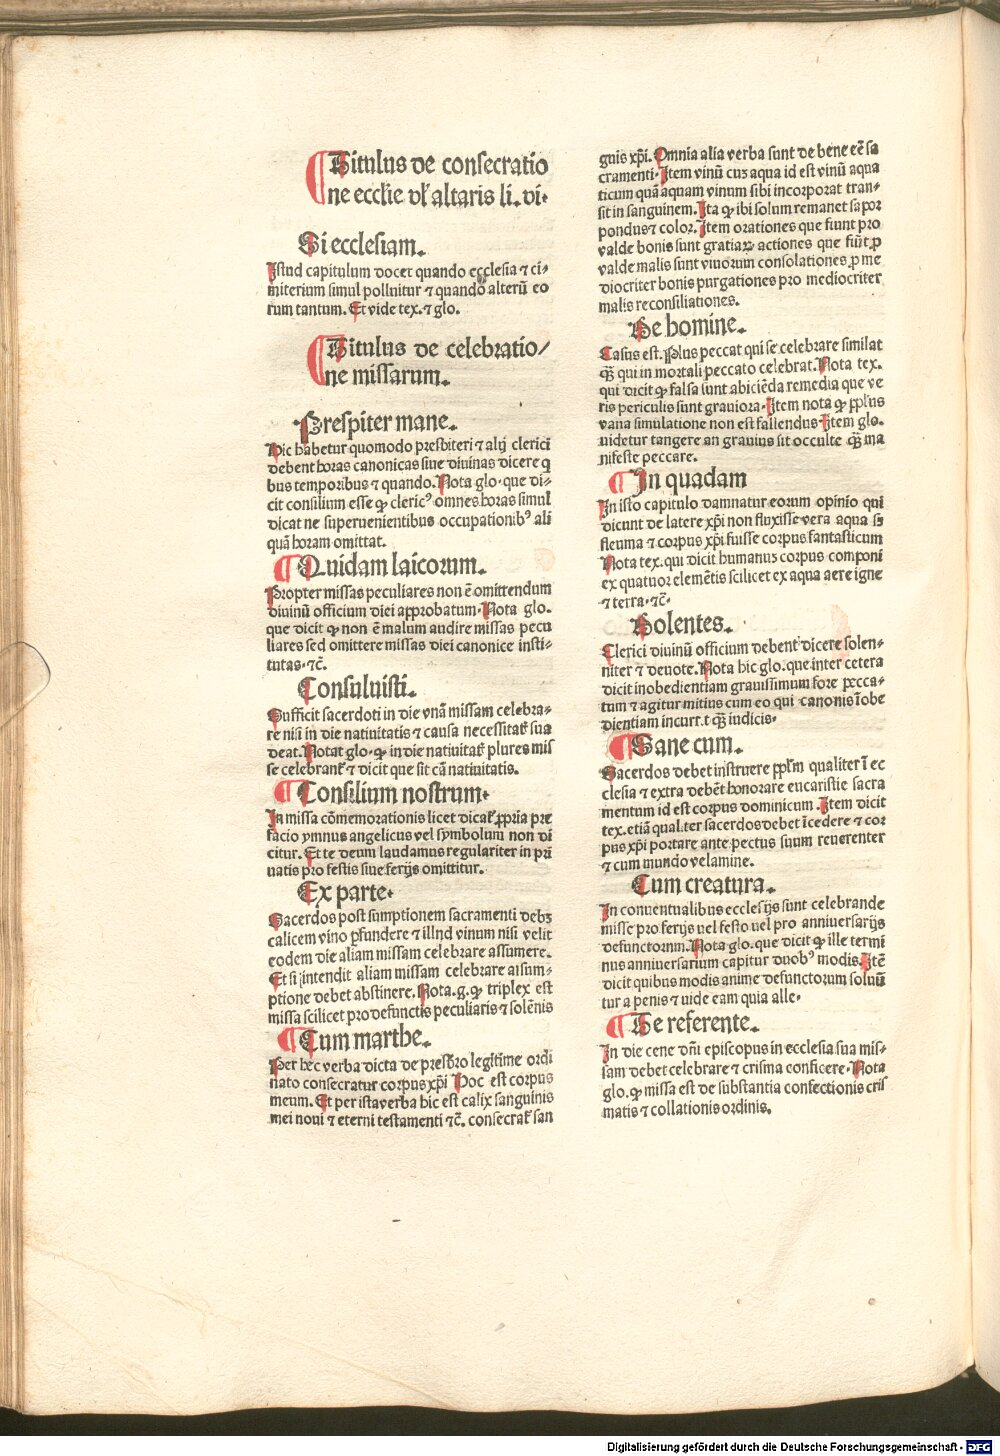 Titulus de consecratio
ne ecclie vl' altaris li. vi.
Si ecclesiam.
Istud capitulum docet quando ecclesia ⁊ ci⸗
miterium simul polluitur ⁊ quando alterū eo
rum tantum. Et vide tex. ⁊ glo.
Titulus de celebratio/
ne missarum.
Prespiter mane.
Hic habetur quomodo presbiteri ⁊ alij clerici
debent horas canonicas siue diuinas dicere q
bus temporibus ⁊ quando. Nota glo. que di⸗
cit consilium esse ꝙ clericꝰ omnes horas simul
dicat ne superuenientibus occupationibꝰ ali
quā horam omittat.
Quidam laicorum.
Propter missas peculiares non ē omittendum
diuinū officium diei approbatum. Nota glo.
que dicit ꝙ non ē malum audire missas pecu
liares sed omittere missas diei canonice insti⸗
tutas. ⁊c̄.
Consuluisti.
Sufficit sacerdoti in die vnā missam celebra⸗
re nisi in die natiuitatis ⁊ causa necessitatꝭ sua
deat. Notat glo. ꝙ in die natiuitatꝭ plures mis
se celebrant̄ ⁊ dicit que sit cā natiuitatis.
Consilium nostrum.
In missa cōmemorationis licet dicat̄ ꝓpria pre
facio ymnus angelicus vel symbolum non di
citur. Et te deum laudamus regulariter in pri
uatis pro festis siue ferijs omittitur.
Ex parte.
Sacerdos post sumptionem sacramenti debꝫ
calicem vino ꝑfundere ⁊ illud vinum nisi velit
eodem die aliam missam celebrare assumere.
Et si intendit aliam missam celebrare assum⸗
ptione debet abstinere. Nota. g. ꝙ triplex est
missa scilicet pro defunctis peculiaris ⁊ solēnis
Cum marthe.
Per hec verba dicta de presb̄ro legitime ordi
nato consecratur corpus xp̄i Hoc est corpus
meum. Et per ista verba hic est calix sanguinis
mei noui ⁊ eterni testamenti ⁊c̄. consecrat̄ san
guis xp̄i. Omnia alia verba sunt de bene eē sa
cramenti. Item vinū cus aqua id est vinū aqua
ticum quā aquam vinum sibi incorporat tran⸗
sit in sanguinem. Ita ꝙ ibi solum remanet sapor
pondus ⁊ color. Item orationes que fiunt pro
valde bonis sunt gratiaꝝ actiones que fiūt ꝓ
valde malis sunt viuorum consolationes ꝓ me
diocriter bonis purgationes pro mediocriter
malis reconsiliationes.
De homine.
Casus est. Plus peccat qui se celebrare similat
qꝫ qui in mortali peccato celebrat. Nota tex.
qui dicit ꝙ falsa sunt abiciēda remedia que ve
ris periculis sunt grauiora. Item nota ꝙ pp̄lus
vana simulatione non est fallendus. Item glo.
uidetur tangere an grauius sit occulte qꝫ ma
nifeste peccare.
In quadam
In isto capitulo damnatur eorum opinio qui
dicunt de latere xp̄i non fluxisse vera aqua sꝫ
fleuma ⁊ corpus xp̄i fuisse corpus fantasticum
Nota tex. qui dicit humanus corpus componi
ex quatuor elemētis scilicet ex aqua aere igne
⁊ terra. ⁊c̄.
Dolentes.
Clerici diuinū officium debent dicere solen⸗
niter ⁊ deuote. Nota hic glo. que inter cetera
dicit inobedientiam grauissimum fore pecca⸗
tum ⁊ agitur mitius cum eo qui canonis īobe
dientiam incurrit qꝫ iudicis.
Sane cum.
Sacerdos debet instruere pp̄lm qualiter ī ec
clesia ⁊ extra debēt honorare eucaristie sacra
mentum id est corpus dominicum. Item dicit
tex. etiā qualiter sacerdos debet īcedere ⁊ cor
pus xp̄i portare ante pectus suum reuerenter
⁊ cum mundo velamine.
Cum creatura.
In conuentualibus ecclesijs sunt celebrande
misse pro ferijs uel festo uel pro anniuersarijs
defunctorum. Nota glo. que dicit ꝙ ille termi
nus anniuersarium capitur duobꝰ modis. Itē
dicit quibus modis anime defunctorum soluū
tur a penis ⁊ uide eam quia alle.
Te referente.
In die cene dn̄i episcopus in ecclesia sua mis⸗
sam debet celebrare ⁊ crisma conficere. Nota
glo. ꝙ missa est de substantia confectionis cris
matis ⁊ collationis ordinis.
Digitalisierung gefördert durch die Deutsche Forschungsgemeinschaft - DFG